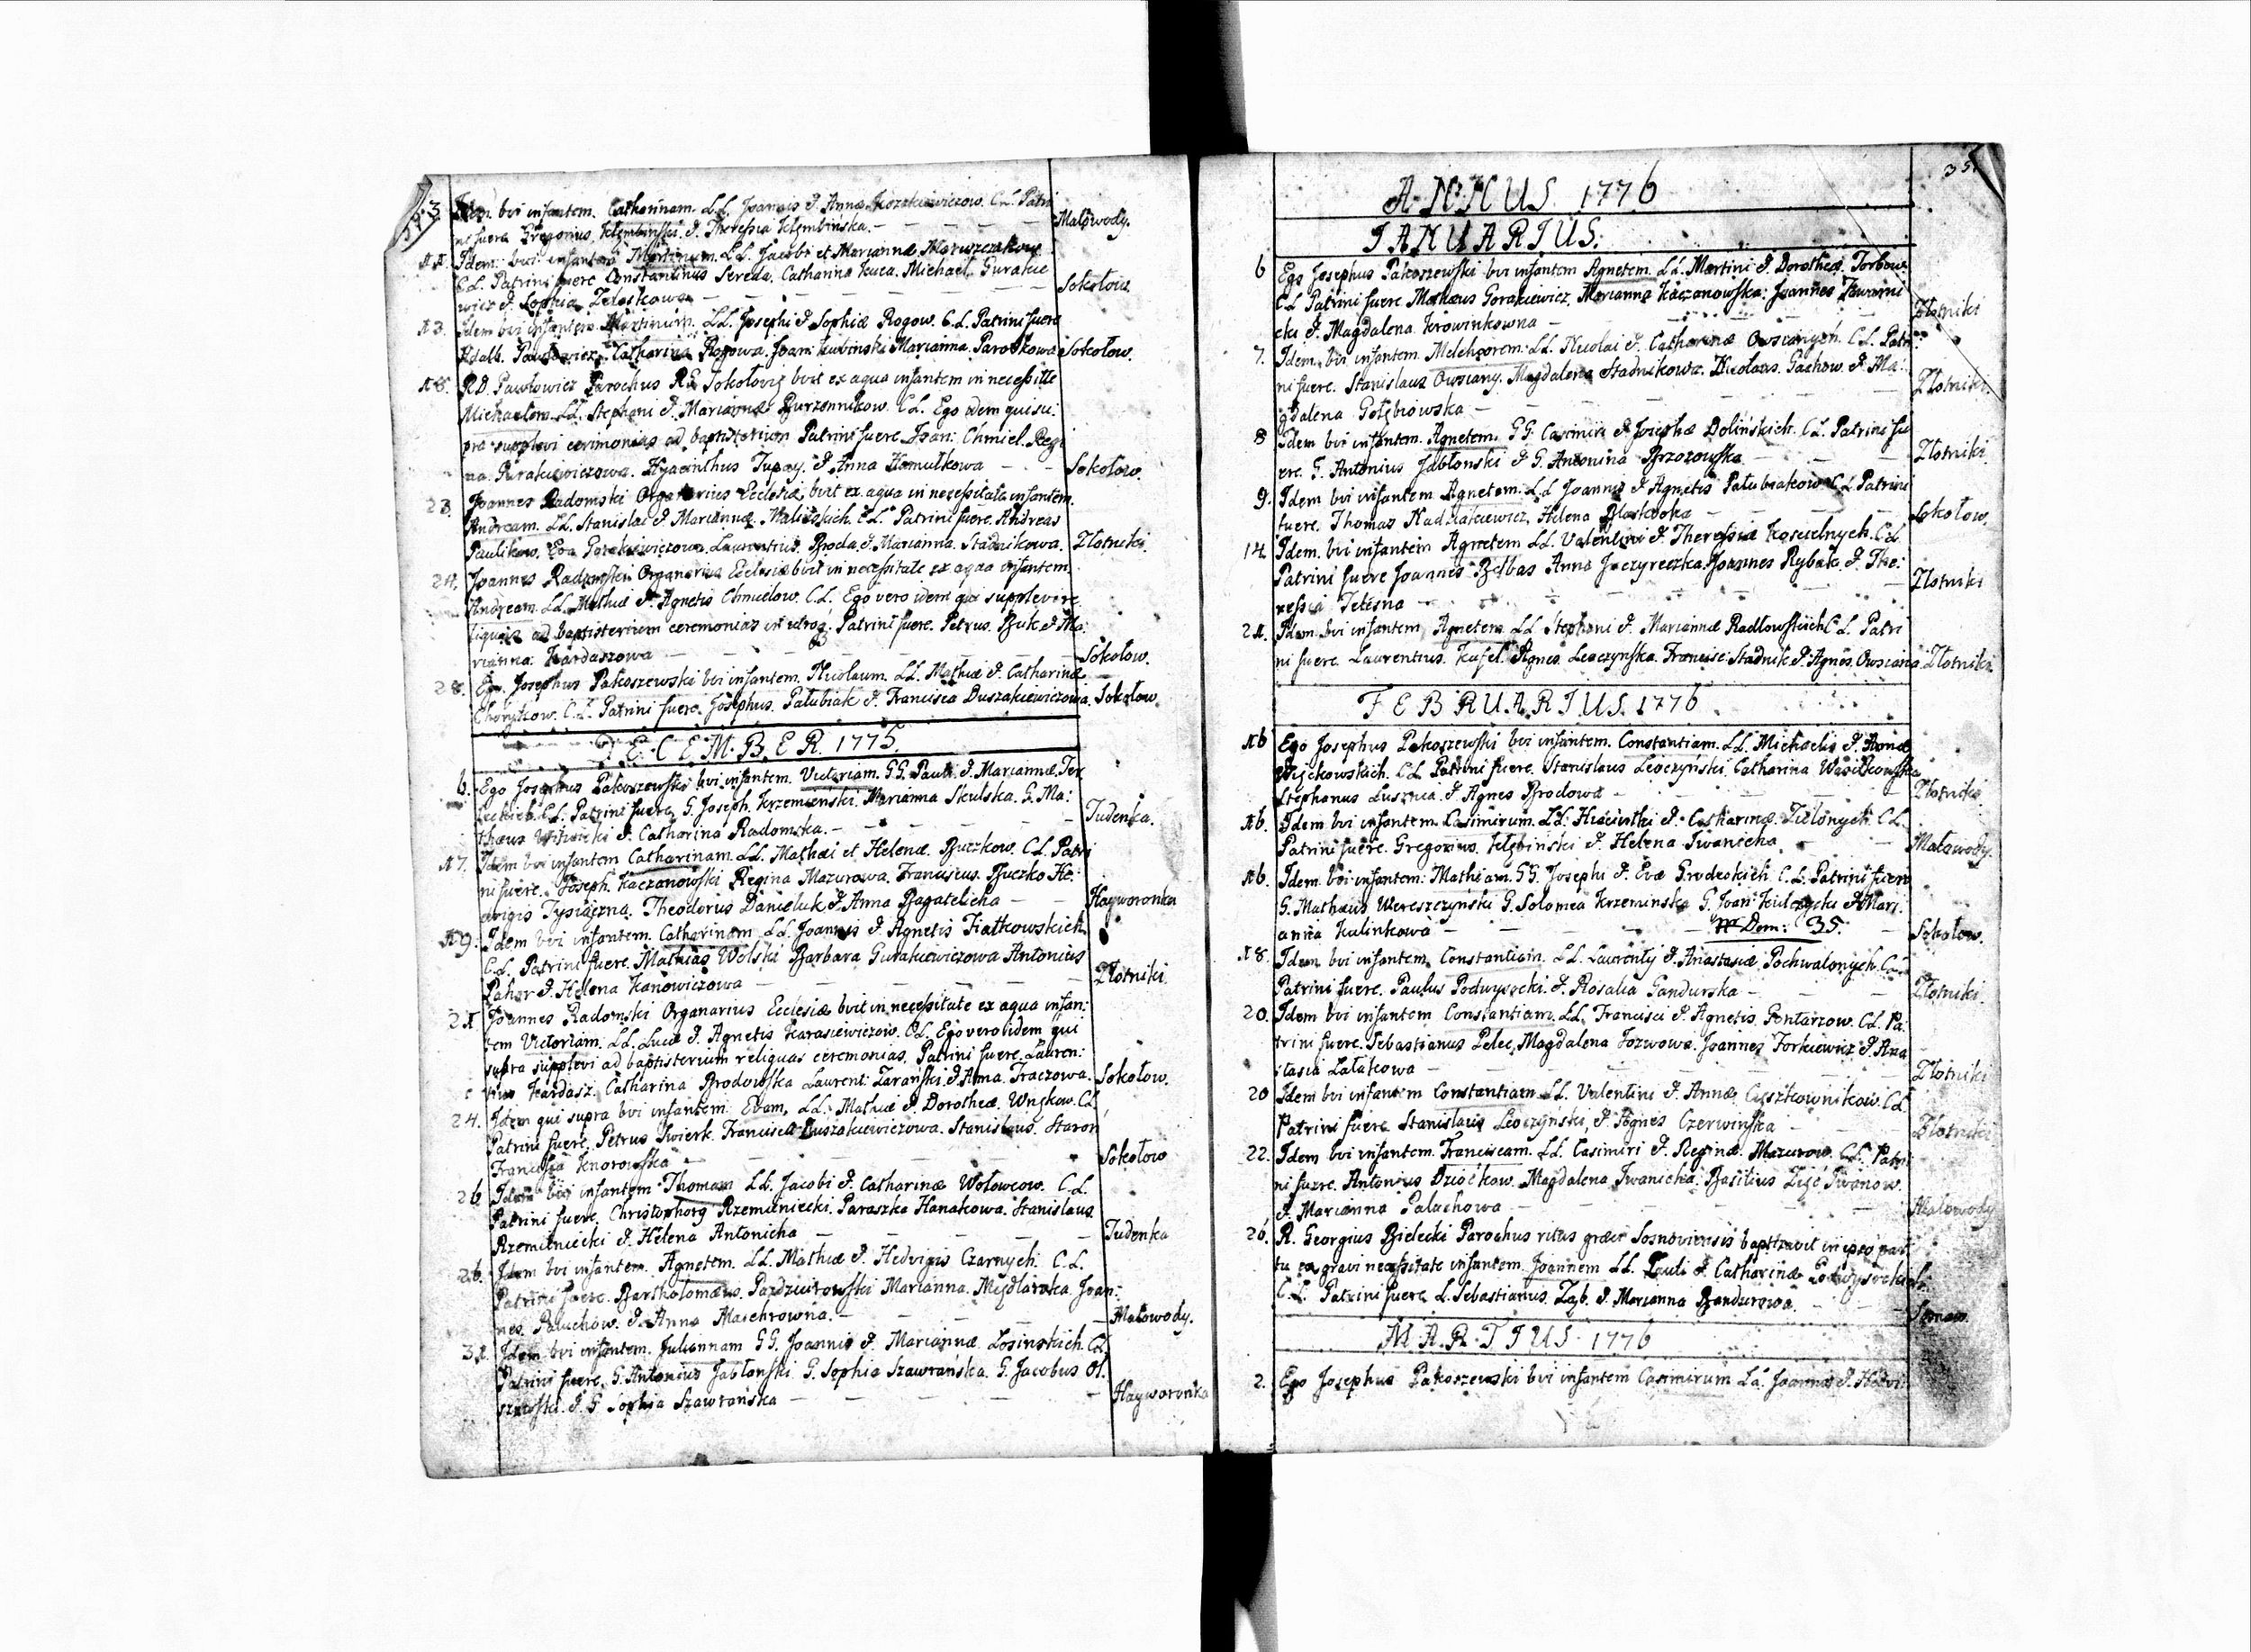 3 Idem bvi infantem. Catharinam. LL. Joannis & Annæ Kozakiewiczow. C.L. Patri
ni fuere Gregorius Klębinski. & Theressia Klembińska. – Małowody.
11. Idem: bvi infantem Martinum. LL. Jacobi et Mariannæ
C.L. Patrini fuere Constantinus Sereda. Catharina Kuca. Michael Gurakie
wicz &. Sophia Zeleskowa – Sokołow.
13. Idem bvi infantem Martinum. LL. Josephi & Sophiæ Rogow. C.L. Patrini fuere
Adalb. Pawłowicz Catharina Rogowa. Joan: Łubinski Marianna. Sokołow.
18. RD Pawłowicz Parochus RG Sokołovis bvit ex aqua infantem in necessitte
Michaelem LL. Stephani & Mariannæ Burzennikow. C.L. Ego idem qui su:
pra supplevi cerimonias ad baptisterium Patrini fuere Joan: Chmiel. Regi
na. Gurakiewiczowa. Hyacinthus Tupay. & Anna Homulkowa – – Sokołow.
23. Joannes Radomski Organarius Ecclesiæ bvit ex aqua in necessitate infantem.
Andream. LL. Stanislai & Mariannæ. Malickich. C.L. Patrini fuere. Andreas
Paulikow. Eva Gurakiewiczowa. Laurentius. Broda & Marianna. Stadnikowa. Złotniki.
24. Joannes Radomski Organarius Ecclesiæ bvit in necessitate ex aqua infantem.
Andream. LL. Mathiæ & Agnetis Chmielow. C.L. Ego vero idem qui supplevi re
liquas ad baptisterium ceremonias Patrini fuere. Petrus. Buk & Ma:
rianna: Kardaszowa – Sokołow.
28. Ego Josephus Pakoszewski bvi infantem. Nicolaum. LL. Mathiæ & Catharinæ
C.L. Patrini fuere. Josephus. Pałubiak & Francisca Duszakiewiczowa. Sokołow.
DECEMBER. 1775.
6. Ego Josephus Pakoszewski bvi infantem. Victoriam. GG. Pauli & Mariannæ.
C.L. Patrini fuere G. Joseph. Krzemienski. Marianna Skulska. G. Ma:
thæus & Catharina Radomska. – Judenka.
17. Idem bvi infantem Catharinam. LL. Mathæi et Helenæ. Buczkow. C.L. Patri
ni fuere. Joseph. Kaczanowski Regina Mazurowa. Franciscus. Buczko He:
dvigis Tysiączna. Theodorus Danieluk & Anna Bagatelicha – – Hayworonka
19. Idem bvi infantem. Catharinam LL. Joannis & Agnetis Fiałkowskich
C.L. Patrini fuere. Mathias Wolski Barbara Gurakiewiczowa Antonius
& Helena Kanowiczowa – Złotniki.
21 Joannes Radomski Organarius Ecclesiæ bvit in necessitate ex aqua infan:
tem Victoriam. LL. Lucæ & Agnetis Karasiewiczow. C.L. Ego vero idem qui
supra supplevi ad baptisterium reliquas ceremonias. Patrini fuere. Lauren:
tius Kardasz. Catharina Brodowska Laurent: Zarański & Anna. Traczowa. Sokołow.
24. Idem qui supra bvi infantem: Evam. LL. Mathiæ & Dorotheæ. C.L.
Patrini fuere. Petrus Swierk. Francisca Duszakiewiczowa. Stanislaus. Staron
Francisca Knorowska – Sokołow
26 Idem bvi infantem Thomam LL. Jacobi & Catharinæ Wołowcow. C.L.
Patrini fuere. Christophorg Rzemieniecki. Paraszka Hanakowa. Stanislaus
Rzemieniecki & Helena Antonicha – Judenka
26. Idem bvi infantem. Agnetem. LL. Mathiæ & Hedvigis Czarnych. C.L.
Patrini fuere. Bartholomæus. Pazdziurowski Marianna. Joan:
nes. Paluchow. & Anna – Małowody.
31. Idem bvi infantem. Juliannam GG. Joannis & Mariannæ Łosinskich. C.L.
Patrini fuere. G. Antonius Jabłonski. G. Sophia Szawrańska. G. Jacobus Ol:
szewski. & G Sophia Szawrańska – Hayworonka
35
ANNUS 1776
JANUARIUS.
6 Ego Josephus Pakoszewski bvi infantem Agnetem. LL. Martini & Dorotheæ.
C.L. Patrini fuere Mathæus Gorakiewicz. Marianna Kaczanowska: Joannes
cki & Magdalena Krowinkowna – Złotniki
7. Idem bvi infantem. Melchiorem. LL. Nicolai & Catharinæ Owsianych. C.L. Patri
ni fuere. Stanislaus Owsiany. Magdalena Stadnikowa. Nicolaus. Gachow. & Ma:
gdalena Gołębiowska – Złotniki.
8 Idem bvi infantem. Agnetem. GG. Casimiri & Josephæ Dolińskich. C.L. Patrini fu
ere. G. Antonius Jabłonski & G. Antonina Brzozowska – Złotniki.
9. Idem bvi infantem Agnetem. LL Joannis & Agnetis Pałubiakow C.L. Patrini
fuere. Thomas Helena – Sokołow.
14. Idem. bvi infantem Agnetem LL Valentini & Theressiæ Koscielnych. C.L.
Patrini fuere Joannes Bełbas Anna Jaczyreczka. Joannes Rybak. & The:
ressia – Złotniki
21. Idem bvi infantem Agnetem LL Stephani & Mariannæ Radłowskich C.L. Patri
ni fuere. Laurentius. Kufel. Agnes. Leoczynska. Francisc: Stadnik & Agnes. Owsiana. Złotniki
FEBRUARIUS. 1776
16 Ego Josephus Pakoszewski bvi infantem. Constantiam. LL. Michaelis & Annæ
C.L. Patrini fuere. Stanislaus Leoczyński. Catharina
Stephanus Łusznia. & Agnes Brodowa – Złotniki.
16. Idem bvi infantem. Casimirum. LL. Hiacinthi & Catharinæ. Zielonych. C.L.
Patrini fuere. Gregorius. Klębiński & Helena Iwanicha. – Małowody.
16. Idem bvi infantem: Mathiam. GG. Josephi & Evæ Grodzkich. C.L. Patrini fuere
G. Mathæus Wereszczyński G. Solomea Krzeminska G. Joan: Kulczycki & Mari:
anna Kulinkowa – Dom: 35. – Sokołow.
18. Idem bvi infantem. Constantiam. LL. Laurenty & Anastasiæ Pochwalonych. C.L.
Patrini fuere. Paulus Podwysocki. & Rosalia Gandurska – Złotniki
20. Idem bvi infantem Constantiam. LL. Francisci & Agnetis. C.L. Pa:
trini fuere. Sebastianus Pelec. Magdalena Jozwowa. Joannes & Ana
stasia Łałakowa – Złotniki
20 Idem bvi infantem Constantiam LL. Valentini & Annæ C.L.
Patrini fuere Stanislaus Leoczyński, & Agnes Czerwińska – Złotniki
22. Idem bvi infantem. Franciscam. LL. Casimiri & Reginæ. Mazurow. C.L. Patri
ni fuere. Antonius Dziockow. Magdalena Iwanicha: Basilius Zięć Iwanow.
& Marianna Paluchowa – Małowody
26. R. Georgius Bielecki Parochus ritus græci Sosnoviensis baptizavit in ipso par
tu ex gravi necessitate infantem. Joannem LL. Pauli & Catharinæ Podwysockich.
C.L. Patrini fuere L. Sebastianus. Ząb. & Marianna Bandurowa. –
MARTIUS 1776
2. Ego Josephus Pakoszewski bvi infantem Casimirum LL: Joannis & Hedvi: